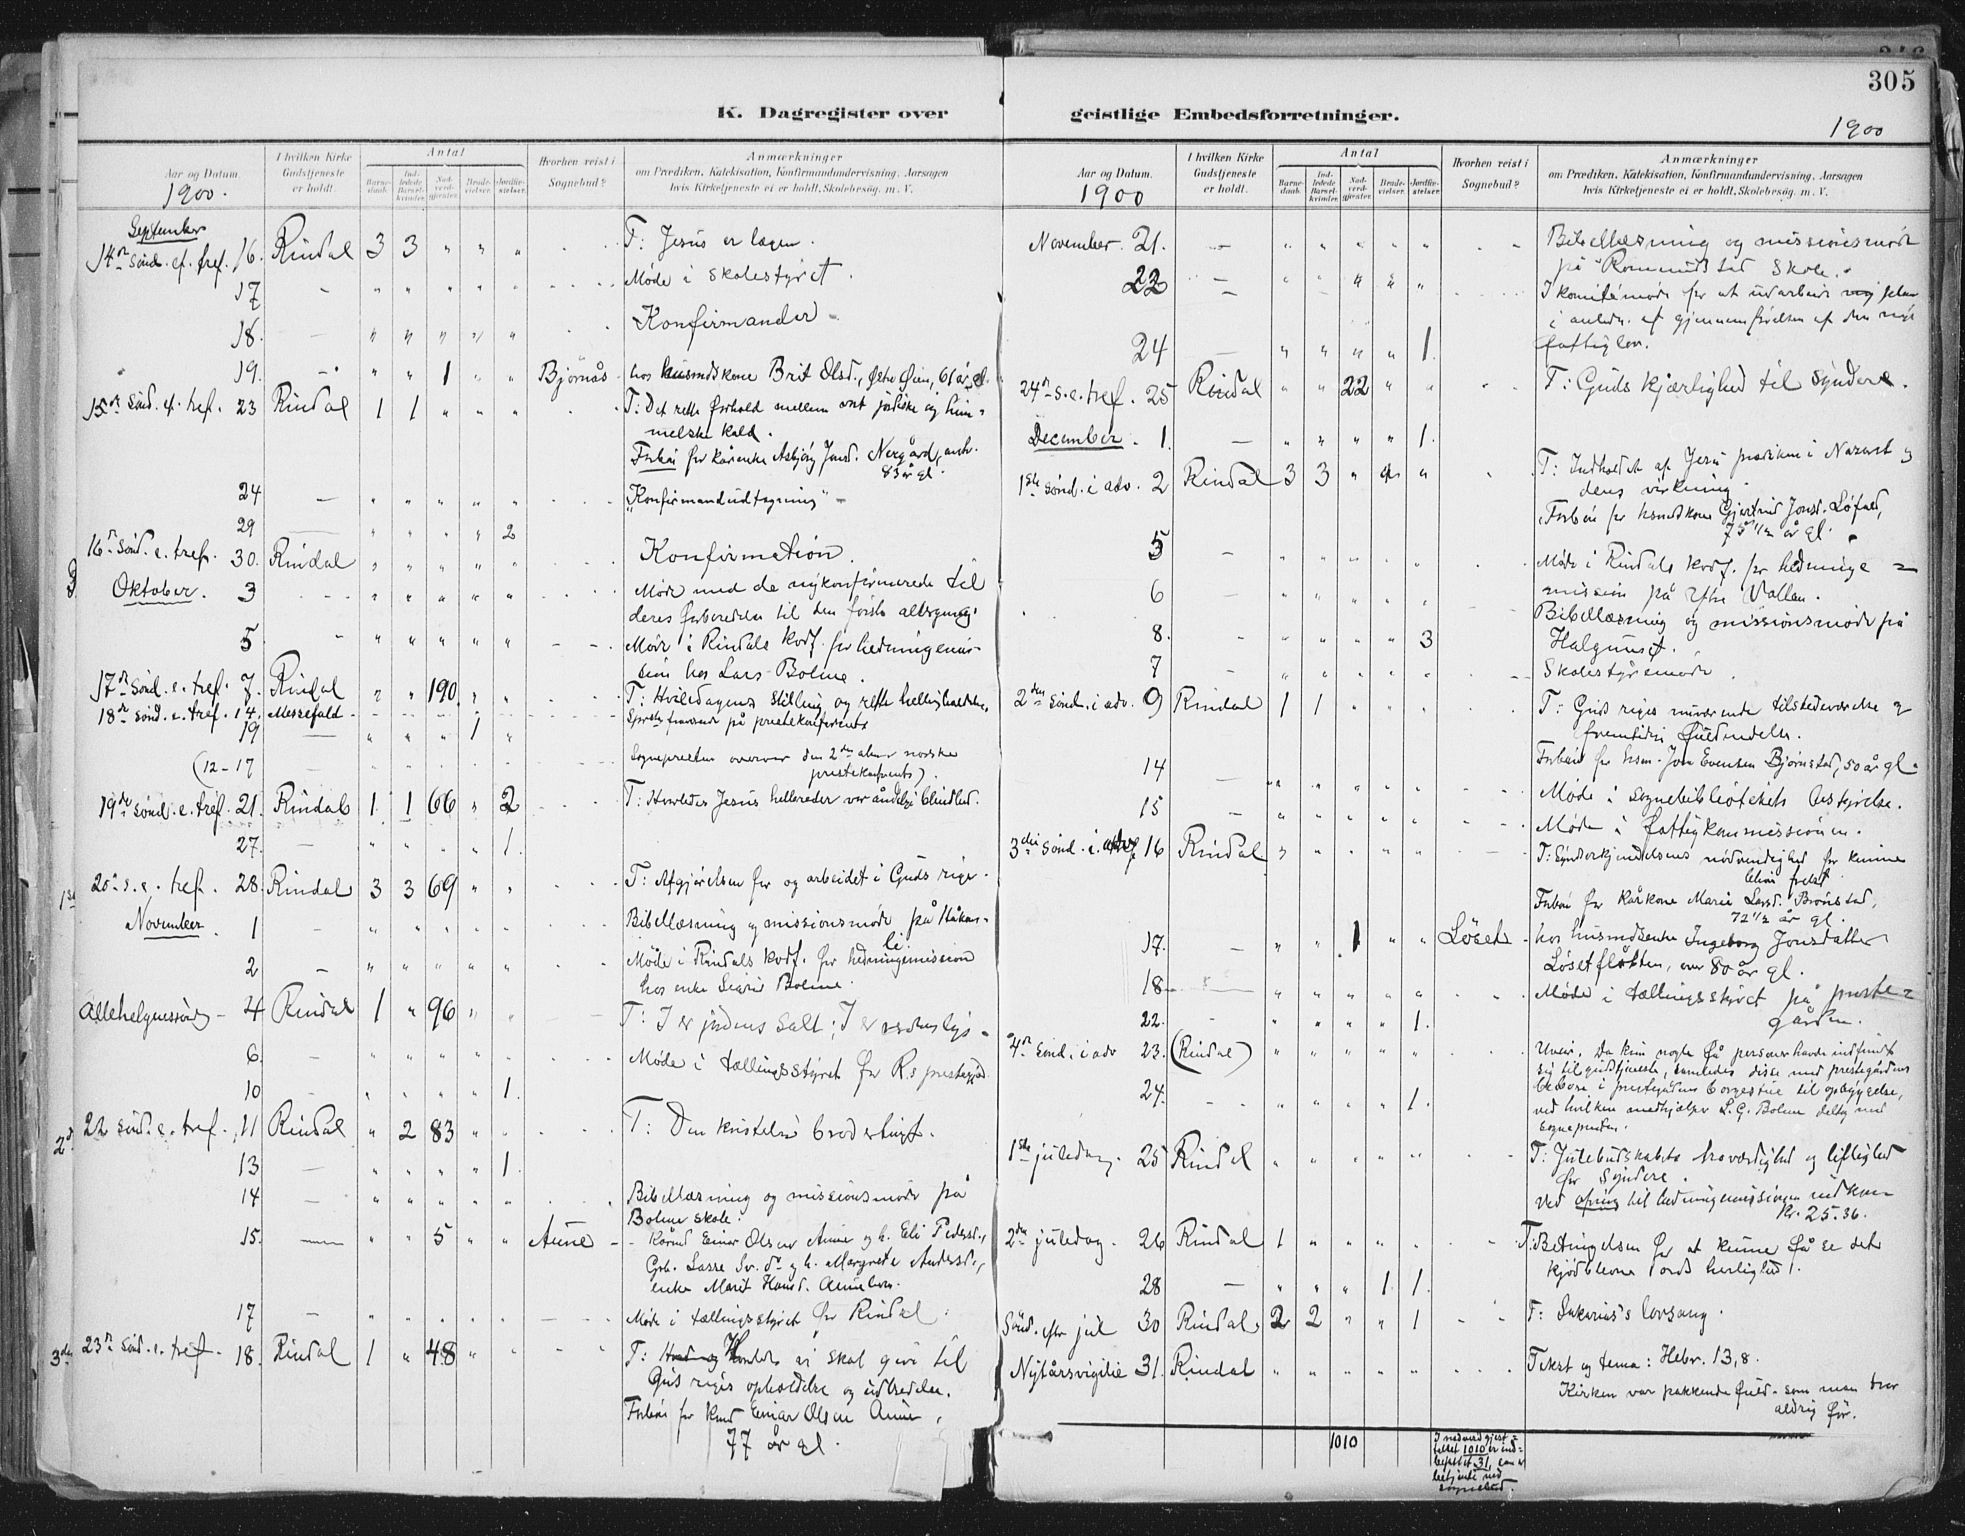 305
K. Dagregister over geistlige Embedsforretninger.
1900
Aar og Datum.
1900.
I hvilken Kirke Gudstjeneste er holdt.
Antal
Barnedaab.
Indledede Barselkvinder.
Nadverdgjester.
Brudevielser.
Jordfæstelser.
Hvorhen reist i Sognebud?
Anmærkninger
om Prædiken, Katekisation, Konfirmandundervisning, Aarsagen
hvis Kirketjeneste ei er holdt, Skolebesøg. m. V.
September
14de Sönd. ef. tref. 16. Rindal 3 3 " " " T: Jesus er lægen.
17 - " " " " " Møde i skolestyret.
18. - " " " " " Konfirmander -
19. - " " 1 " " Bjørnås - hos husmdskone Brit Olsd., Østre Øien, 61 år gl.
15de Sönd. ef. tref. 23 Rindal 1 1 " " " T: Det rette forhold mellem vort jordiske og him=
melske kald.
Forbön for kårenke Asbjörg Jonsd. Nergård,
83 år gl.
24 - " " " " " "Konfirmandudtagning" -
29 - " " " " 2
16de Sönd. e. tref. 30. Rindal " " " " " Konfirmation.
Oktober. 3 - " " " " " Møde med de nykonfirmerede til
deres forberedelse til den første altergang.
5 - " " " " " Møde i Rindals kvdf. for hedningemis-
sion hos Lars Bolme.
17de Sönd. e. tref. 7. Rindal " " 190. " " T: Hviledagens stilling og rette helligholdelse.
18de Sönd. e. tref. 14. Messefald
på prestekonferents
19 " " " 1 "
(12-17 - Sognepresten overvar den 2den alm. norske
prestekonferents).
19de Sönd. e. tref. 21. Rindal 1 1 66 " 2 T: Hvorledes Jesus helbreder vor åndelige blindhed.
27. - " " " " 1.
20de s. e. tref. 28. Rindal 3 3 69 " " T: Afgjørelsen for og arbeidet i Guds rige.
November. 1 - " " " " " Bibellæsning og missionsmøde på Håkan-
li.
2 - " " " " " Møde i Rindals kvdf. for hedningemission
hos enke Sigrid Bolme.
Allehelgenssöndag - 4 Rindal 1 " 96 " " T: I er jordens salt; I er verdens lys -
6. - " " " " " Møde i tællingsstyret for R.s prestegjæld.
10 - " " " " 1.
22 sönd. e. tref. 11 Rindal " 2 83 " " T: Den kristelige broderlugt.
13 - " " " " 1.
14 - " " " " " Bibellæsning og missionsmøde på
Bolme skole.
15. - " " 5 " " Aune - Kårmd Einar Olsen Aune og h. Eli Pedersd.,
Grb. Lasse Sv. do og h. Margrete Andersd.,
enke Marit Hansd. Aunebom.
17 - " " " " " Møde i tællingsstyret for Rindal
23de Sönd. e. tref. 18. Rindal 1 " 48 " " T: Hvorledes vi skal give til
Guds riges opholdelse og udbredelse.
Forbön for Kmd Einar Olsen Aune,
77 år gl.
1st
2d
3die
Aar og Datum.
1900
I hvilken Kirke Gudstjeneste er holdt.
Antal
Barnedaab.
Indledede Barselkvinder.
Nadverdgjester.
Brudevielser.
Jordfæstelser.
Hvorhen reist i Sognebud?
Anmærkninger
om Prædiken, Katekisation, Konfirmandundervisning, Aarsagen
hvis Kirketjeneste ei er holdt, Skolebesøg. m. V.
November. 21. - " " " " " Bibellæsning og missionsmøde
på Romundstad Skole.
22 - " " " " " I komitémøde for at udarbeide ny plan
i anledn. af gjennemførelsen af den nye
fattiglov.
24 - " " " " 1.
24de s. e. tref. 25 Rindal " " 22 " " T: Guds kjærlighed til syndere.
December. 1. - " " " " 1.
1ste sönd. i adv. 2 Rindal 3 3 " " " T: Indholdet af Jesu prædiken i Nazaret og
dens virkning.
Forbön for husmdskone Gjertrud Jonsd. Løfald,
75 1/2 år gl.
5 - " " " " " Møde i Rindals kvdf. for hedninge=
mission på ytre Vollan.
6 - " " " " " Bibellæsning og missionsmøde på
8. - " " " " 3 Halgunset.
7 - " " " " " Skolestyremøde.
2den sönd. i adv. 9 Rindal 1 1 " " " T: Guds riges nuværende tilstedeværelse og
fremtidige fuldendelse.
Forbön for hsm. Jon Evensen Bjørnstad, 50 år gl.
14 - " " " " " Møde i sognebibliotekets bestyrelse.
15 - " " " " " Møde i fattigkommissionen.
3die sönd. i adv. 16 Rindal " " " " " T: Synderkjendelsens nødvendighed for kunne
blive frelst.
Forbön for kårkone Marie Larsd. Brønstad,
72 1/2 år gl.
17. - " " 1 " " Löset - hos husmdsenke Ingeborg Jonsdatter
Løsetfløtten, over 80 år gl.
18 - " " " " " Møde i tællingsstyret på preste=
gården.
22. - " " " " 1.
4de Sönd. i adv 23. (Rindal) " " " " " Uveir. Da kun nogle få personer havde indfundet
sig til gudstjeneste, samledes disse med prestegårdens
beboere i prestegårdens borgestue til opbyggelse,
ved hvilken medhjælper L. G. Bolme deltog med
sognepresten.
24. - " " " " 1.
1ste juledag. 25 Rindal " " " " " T: Julebudskabets troværdighed og liflighed
for syndere.
Ved ofring til hedningemissionen indkom
Kr. 25.36.
2den juledag. 26 Rindal 1 " " " " T: Betingelsen for at kunne få se det
kjødblevne ords herlighed.
28 - " " " 1 1.
Sönd. efter jul 30 Rindal. 2 2 " " 1 T: Sakarias's lovsang.
Nytårsvigilie 31. Rindal " " " " " Tekst og tema: Hebr. 13,8.
Kirken var pakkende fuld - som man tror
aldrig før.
1010
I nadverdgjest=
tallet 1010 er ind=
befattet 31, som er
betjente ved
sognebud.